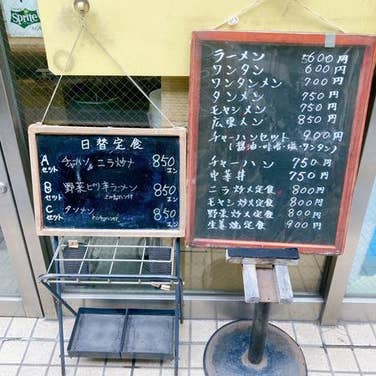 Sprite
日替定食
Aセット チャーハン ニラ炒ナ 850エン
Bセット 野菜ピリ辛ラーメン 850エン
Cセット タンメン 850エン
ラーメン 600円
ワンタン 600円
ワンタンメン 700円
タンメン 750円
モヤシメン 750円
広東メン 850円
チャーハンセット 900円
(醤油・味噌・塩・ワンタン)
チャーハン 750円
中華丼 750円
ニラ炒メ定食 800円
モヤシ炒メ定食 800円
野菜炒メ定食 800円
生姜焼定食 900円